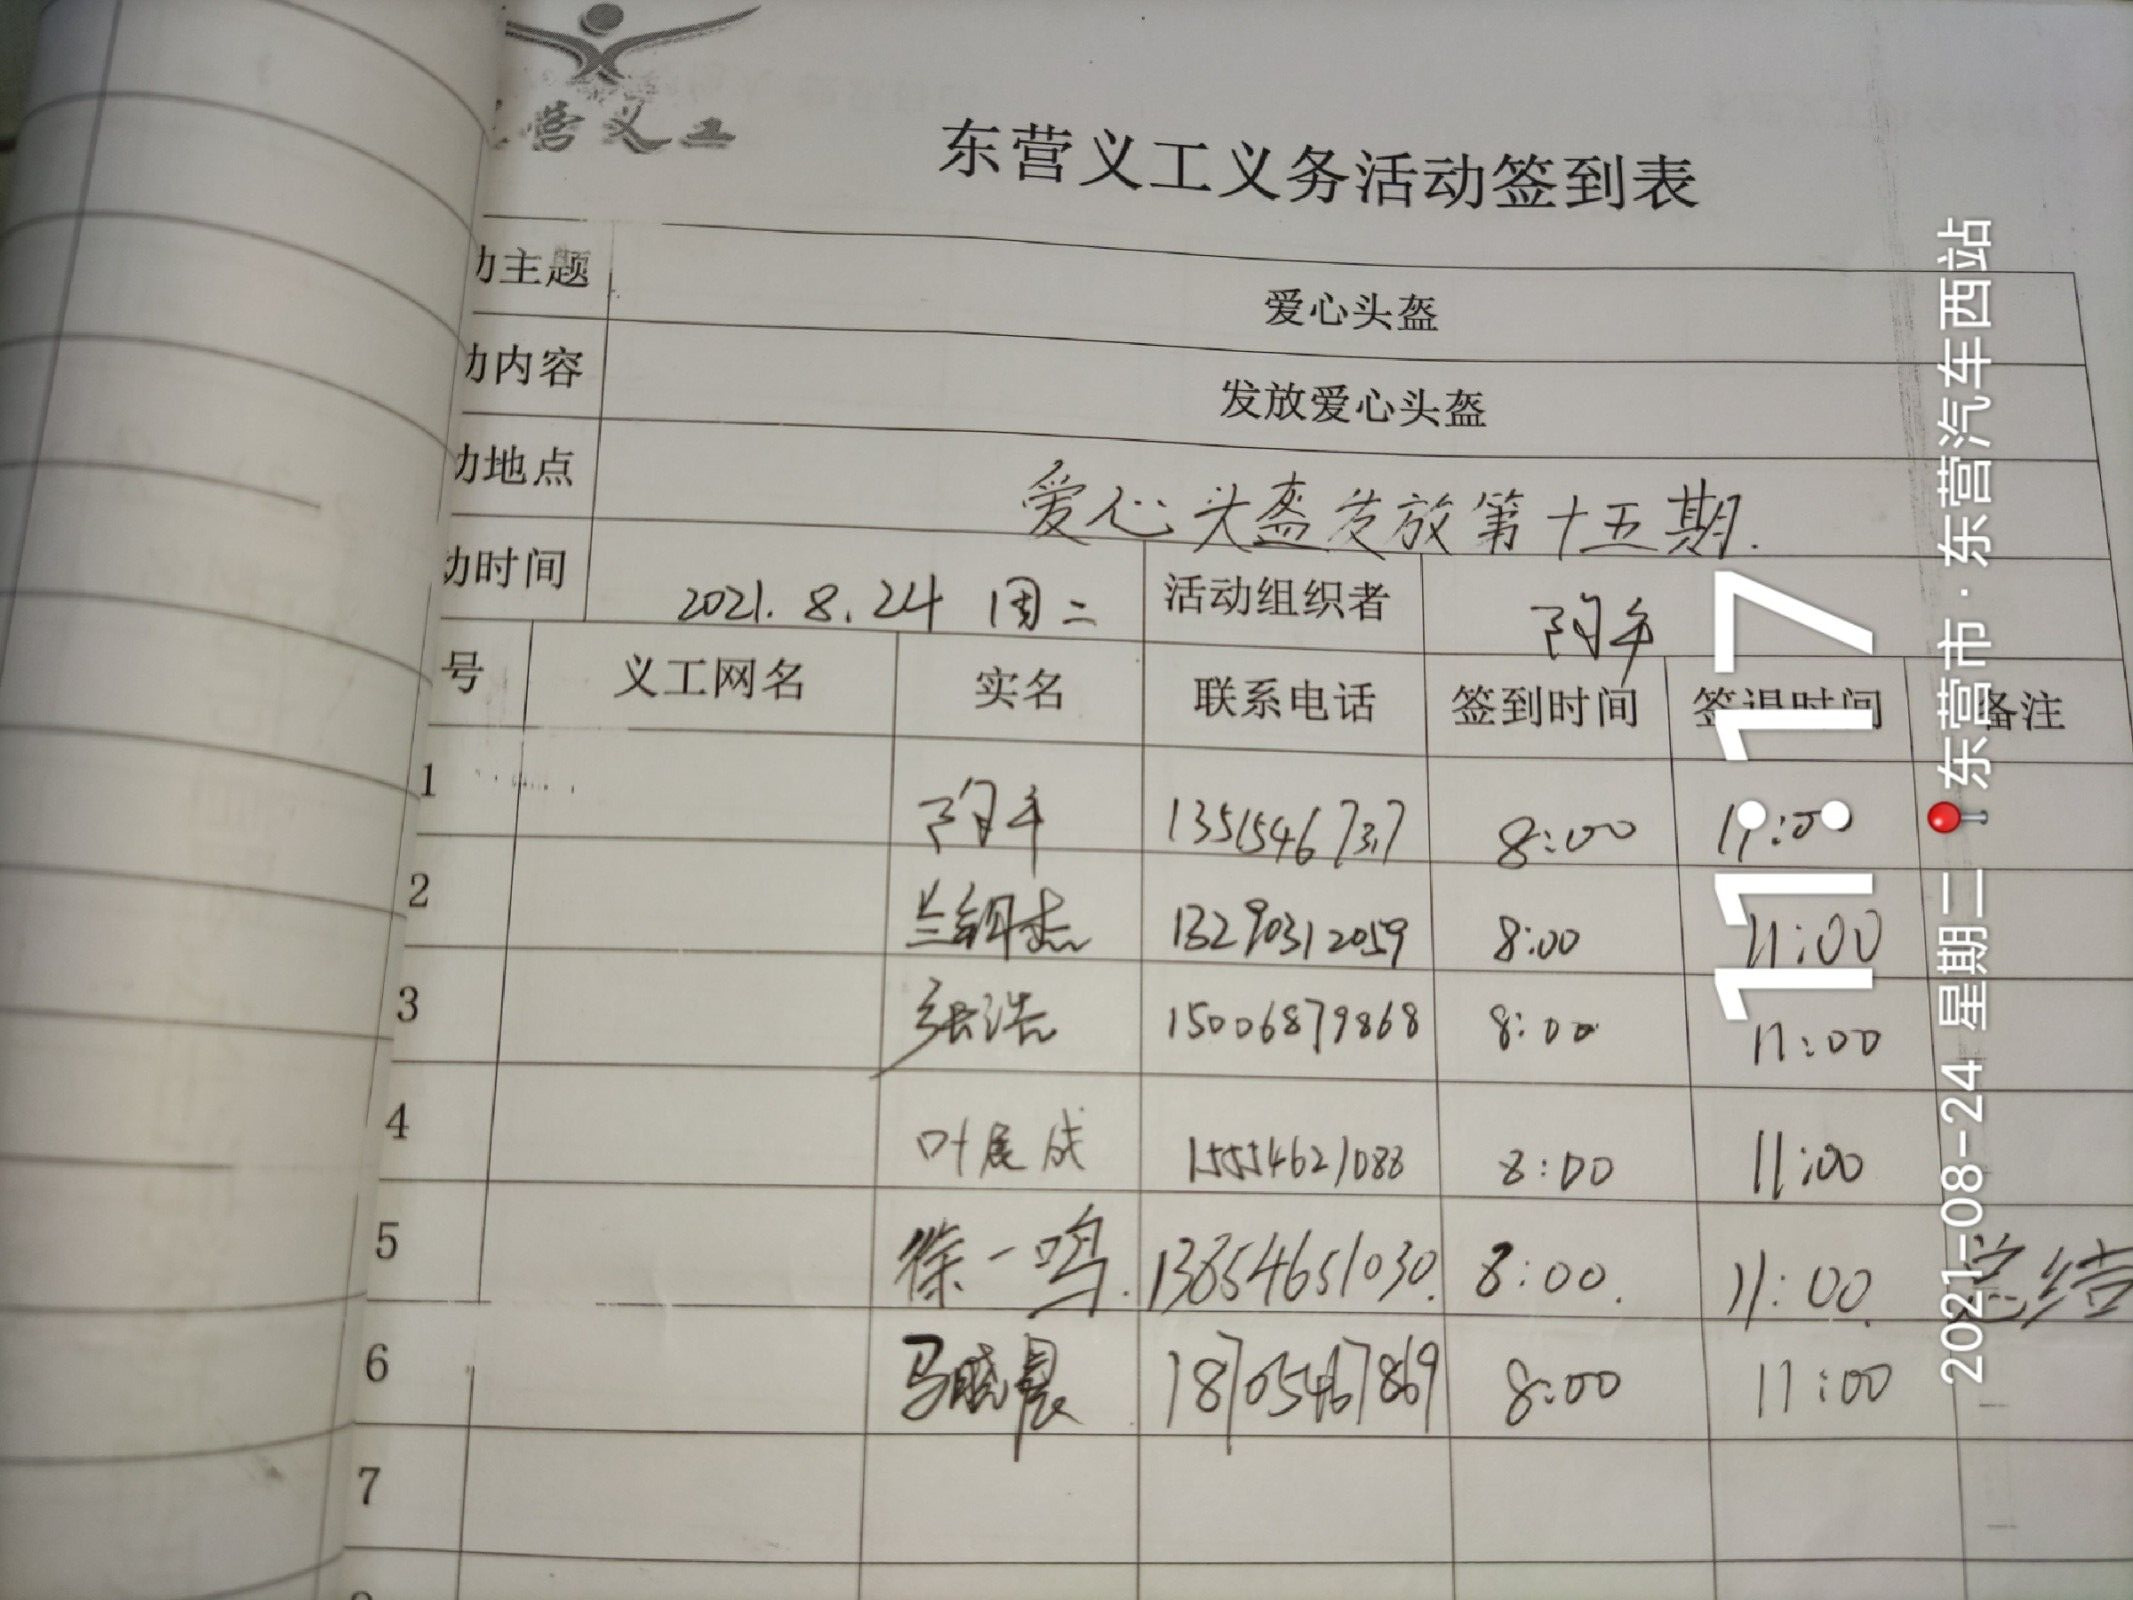 营义工
东营义工义务活动签到表
主题 爱心头盔
内容 发放爱心头盔
地点 爱心头盔发放第十五期.
时间 2021.8.24 周二 活动组织者
号 义工网名 实名 联系电话 签到时间 签退时间 备注
1 8:00 11:00
2 13290312059 8:00 11:00
3 张浩 15006879868 8:00 11:00
4 叶展成 15554621088 8:00 11:00
5 徐一鸣. 13854651030. 8:00. 11:00. 总结
6 马晓晨 18705467869 8:00 11:00
7
11:17
2021-08-24 星期二 东营市·东营汽车西站